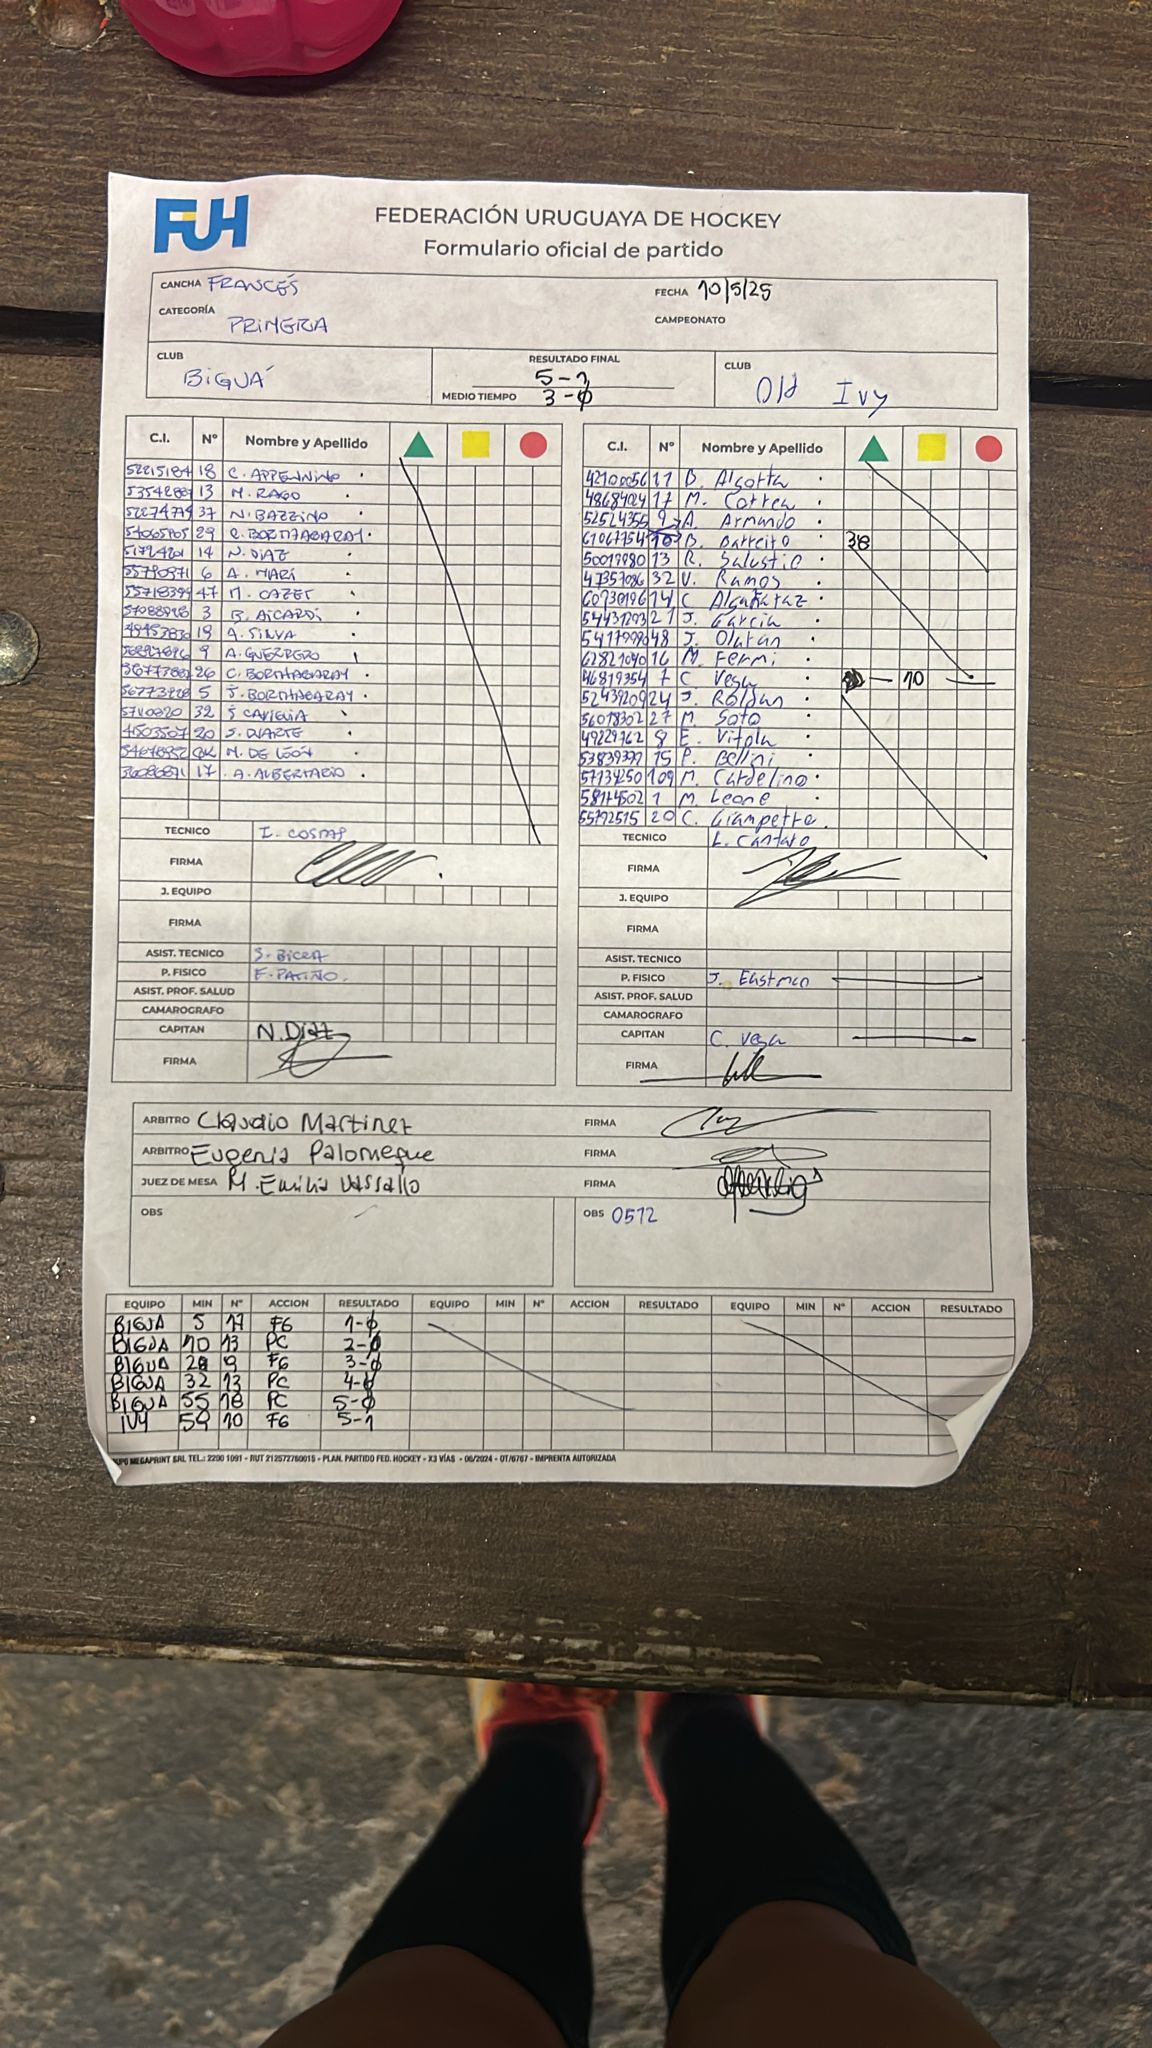 FUH
FEDERACIÓN URUGUAYA DE HOCKEY
Formulario oficial de partido
CANCHA FRANCÉS
FECHA 10/5/25
CATEGORÍA PRIMERA
CAMPEONATO
CLUB BIGUÁ
RESULTADO FINAL 5-1
MEDIO TIEMPO 3-0
CLUB Old Ivy
C.I. Nº Nombre y Apellido
18 C. APPENNINO
13 M. RAGO
37 N. BAZZINO
29 BORTHAGARAY
14 N. DIAZ
6 A. MARI
47 M. CAZET
3 B. AICARDI
19 A. SILVA
9 A. GUERRERO
26 C. BORTHAGARAY
5 J. BORTHAGARAY
32
20 S. DUARTE
M. DE LEÓN
17 A. ALBERTARIO
TECNICO I. COSTAS
FIRMA
J. EQUIPO
FIRMA
ASIST. TECNICO S. BICCA
P. FISICO F. PATIÑO.
ASIST. PROF. SALUD
CAMAROGRAFO
CAPITAN N. Diaz
FIRMA
C.I. Nº Nombre y Apellido
42100056 11 B. Algorta
48684024 17 M. Correa
52524355 9 A. Armando
61067754 10 B. Barreito 38
50019980 13 R. Salustio
47357086 32 V. Ramos
14 C
21 J. Garcia
48 J.
62821090 16 M. Fermi
46819354 7 C Vega 10
52439209 24 J. Roldan
56018302 27 M. Soto
49229762 8 E. Vitola
53839397 15 P. Bellini
57134250 109 M. Cardelino
58174502 1 M. Leone
55792515 20 C. Giampetro
TECNICO L. Cantaro
FIRMA
J. EQUIPO
FIRMA
ASIST. TECNICO
P. FISICO J. Eastman
ASIST. PROF. SALUD
CAMAROGRAFO
CAPITAN C. Vega
FIRMA
ARBITRO Claudio Martinez FIRMA
ARBITRO Eugenia Palomeque FIRMA
JUEZ DE MESA M. Emilia Vassallo FIRMA
OBS
OBS 0572
EQUIPO MIN Nº ACCION RESULTADO EQUIPO MIN Nº ACCION RESULTADO EQUIPO MIN Nº ACCION RESULTADO
BIGUA 5 17 FG 1-0
BIGUA 10 13 PC 2-0
BIGUA 28 9 FG 3-0
BIGUA 32 13 PC 4-0
BIGUA 55 18 PC 5-0
IVY 59 10 FG 5-1
MEGAPRINT SRL TEL.: 2200 1091 - RUT 212572760015 - PLAN. PARTIDO FED. HOCKEY - X3 VÍAS - 06/2024 - OT/6767 - IMPRENTA AUTORIZADA